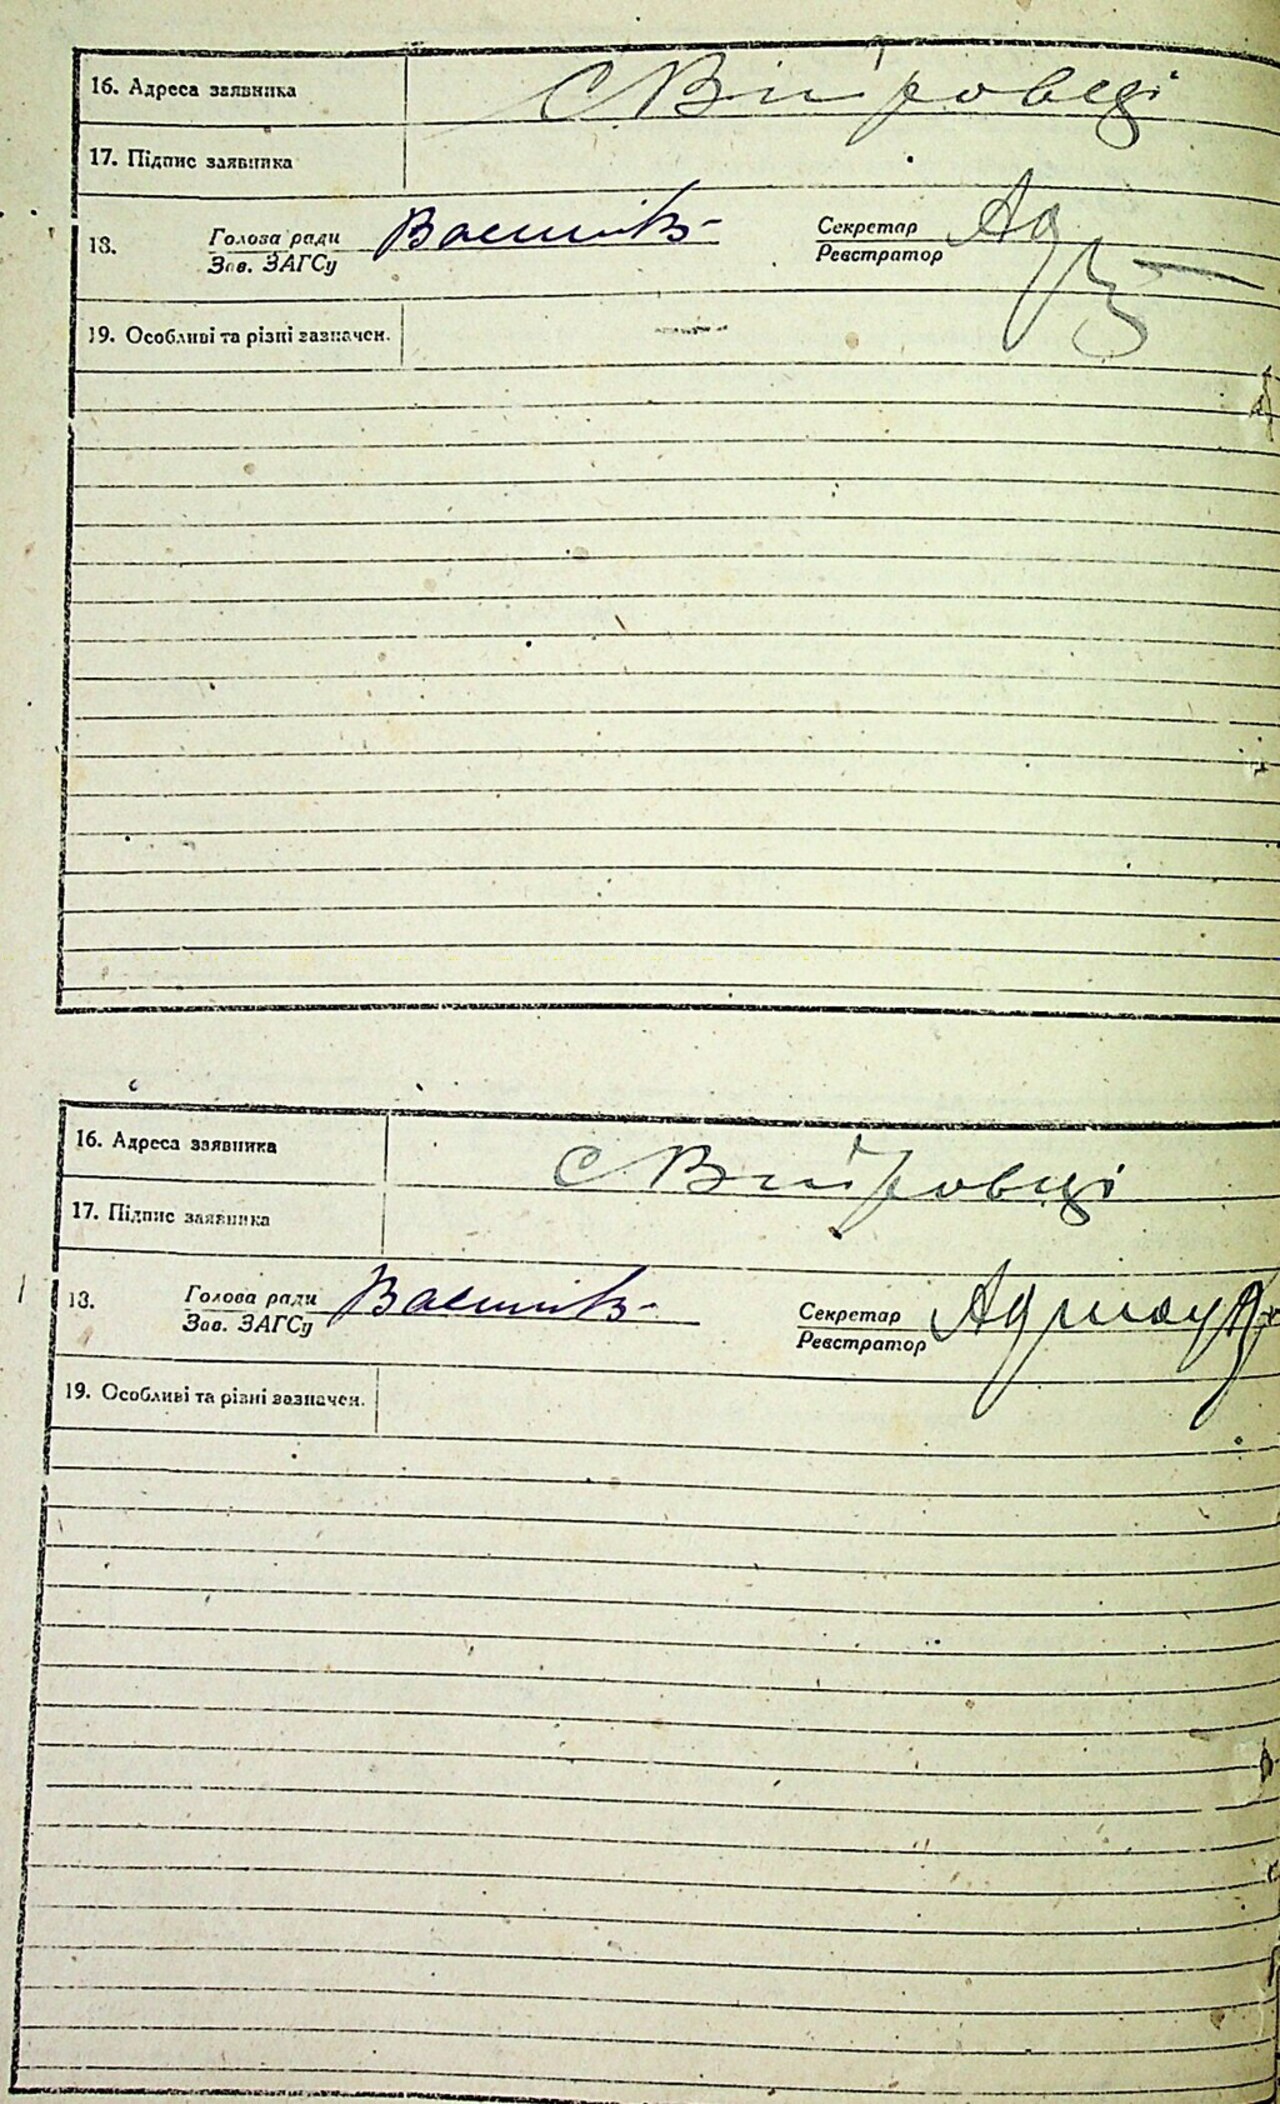 16. Адреса заявника С Вітровці
17. Підпис заявника
18. Голова ради Секретар
Зав. ЗАГСу Реєстратор
19. Особливі та різні зазначен. —
16. Адреса заявника С Вітровці
17. Підпис заявника
18. Голова ради Секретар
Зав. ЗАГСу Реєстратор
19. Особливі та різні зазначен.